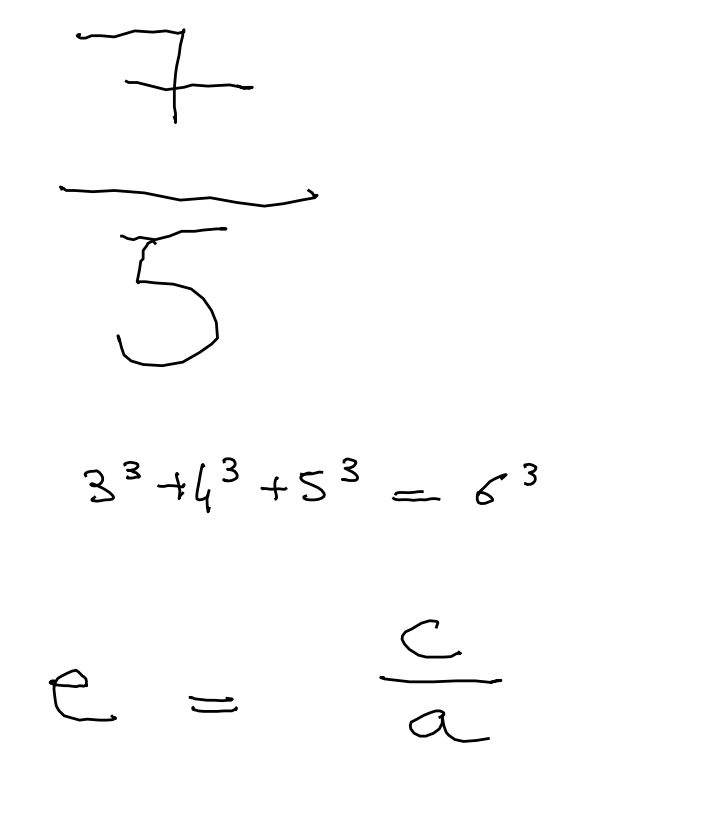 7/5
3³ + 4³ + 5³ = 6³
e = c/a